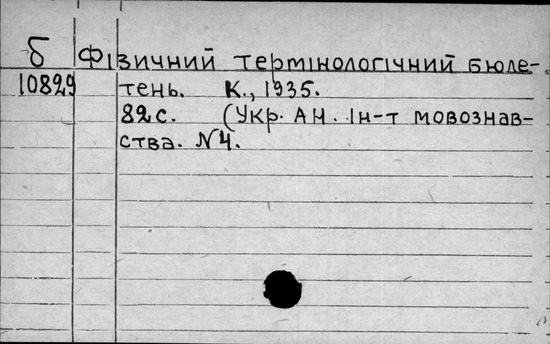 б Фізичний термінологічний бюле-
10829 тень. К., 1935.
82с. (Укр. АН. Ін-т мовознав-
ства. N4.